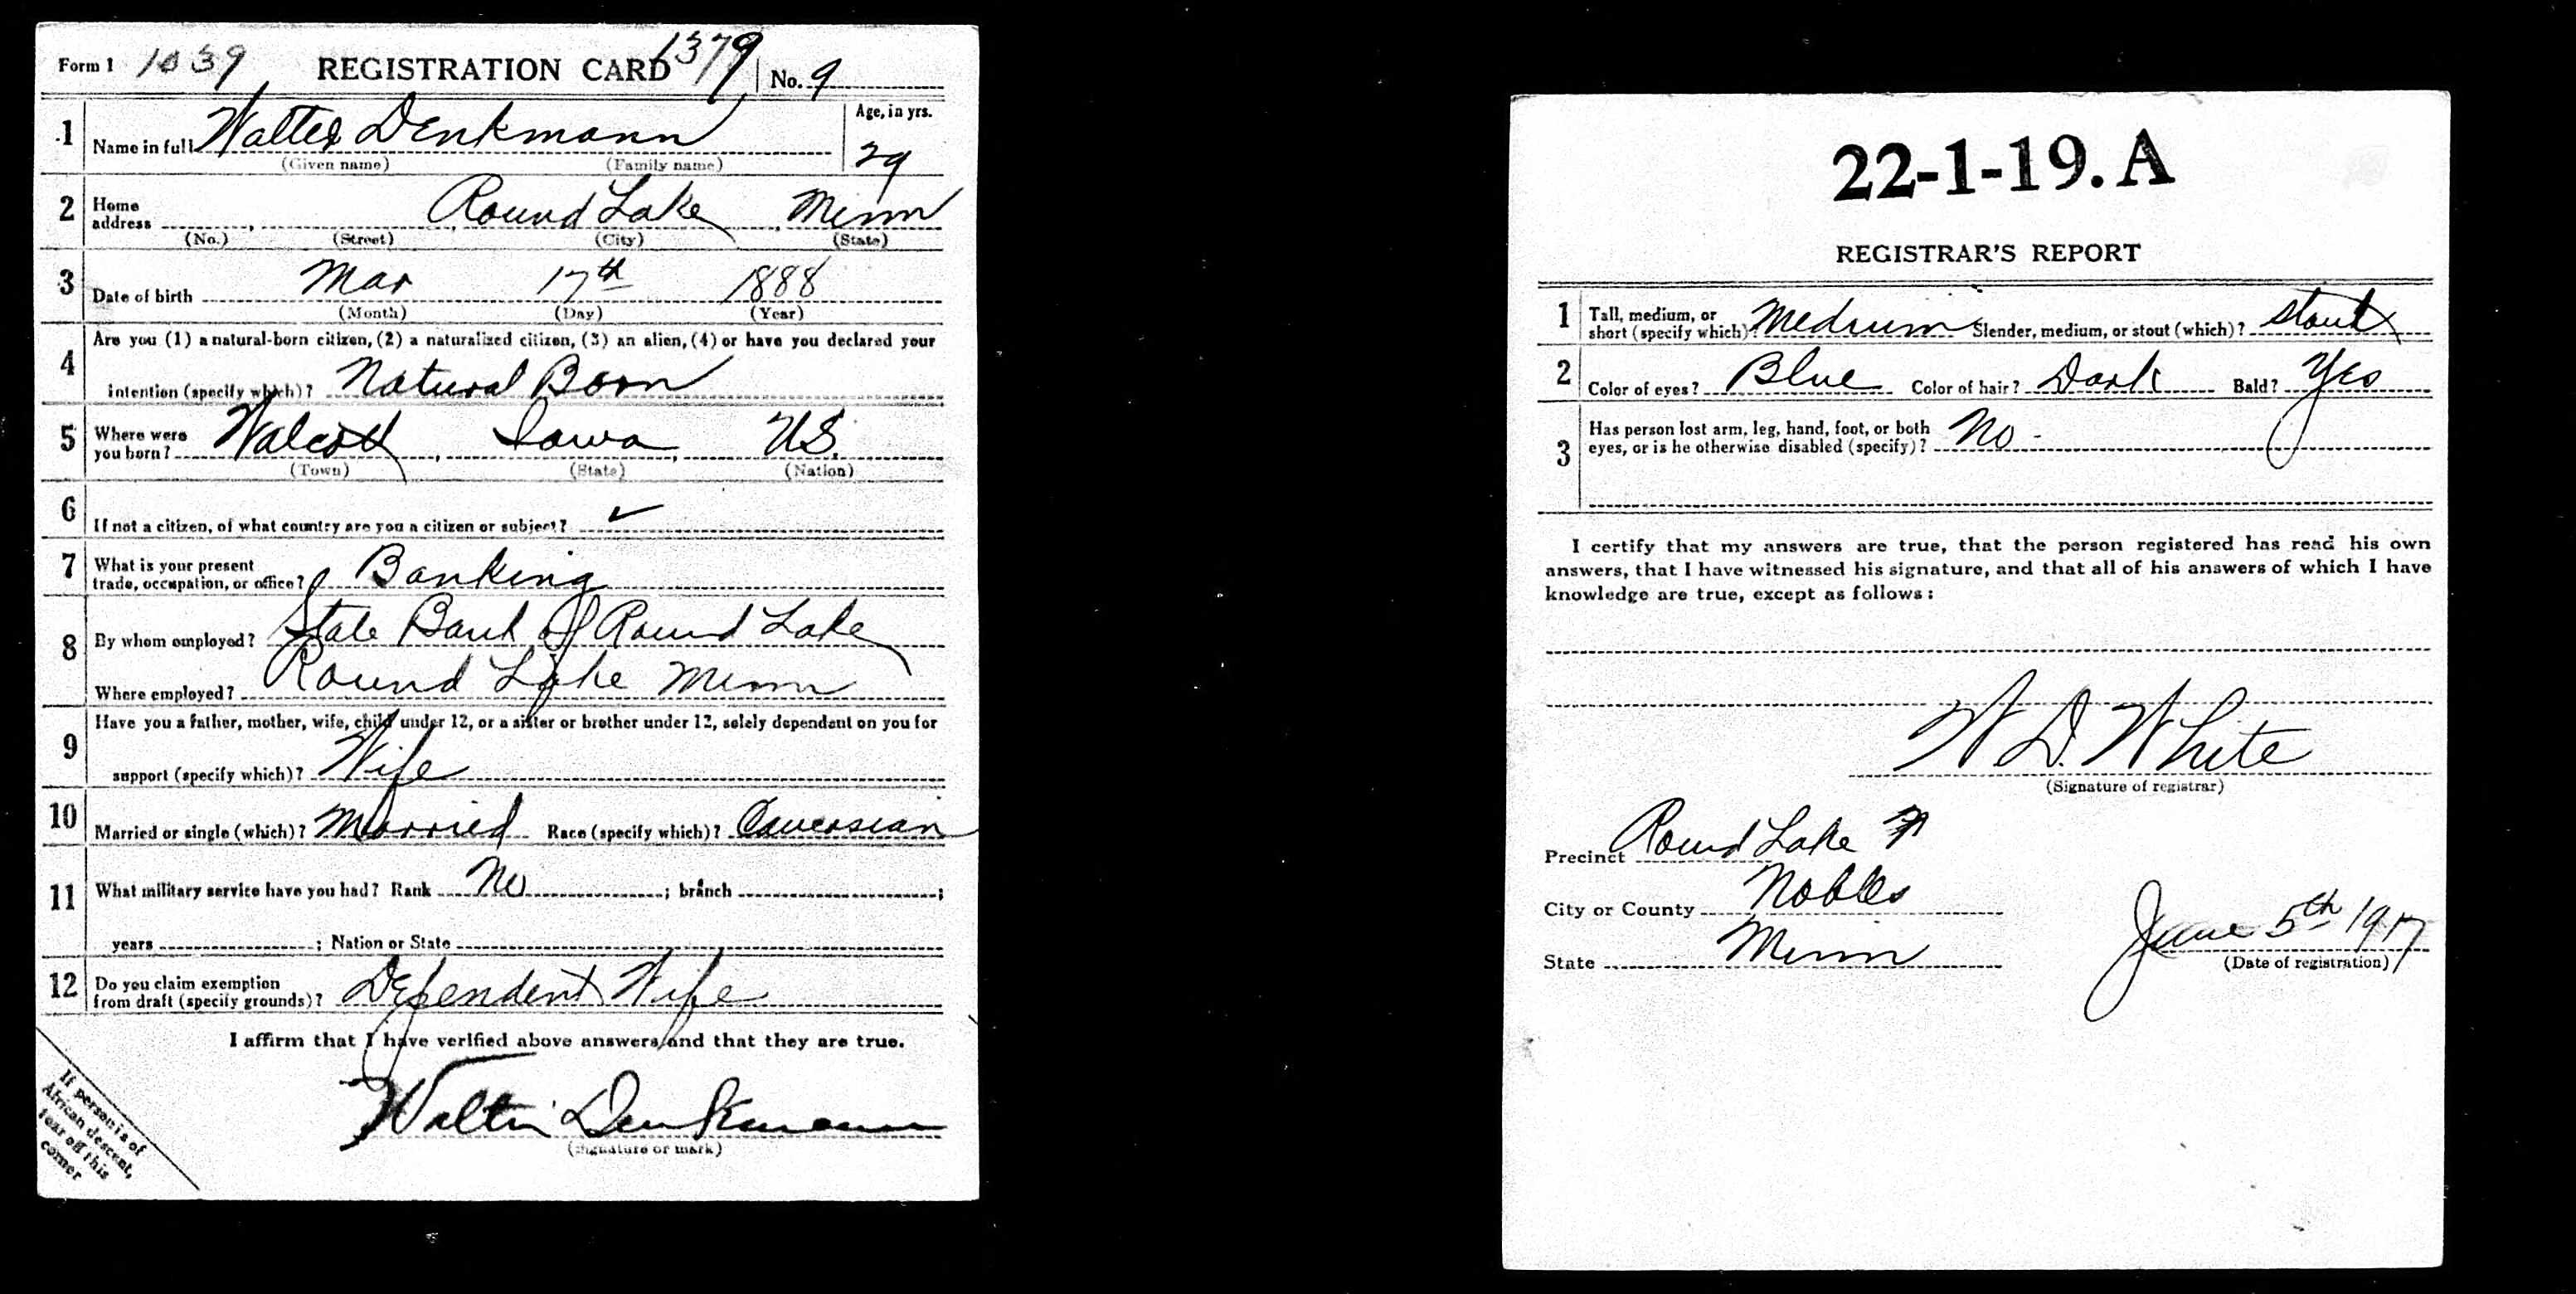 Form 1 1039 REGISTRATION CARD 1379 No. 9
1 Name in full Walter Denkmann Age, in yrs.
(Given name) (Family name) 29
2 Home address Round Lake, Minn
(No.) (Street) (City) (State)
3 Date of birth Mar 17th 1888
(Month) (Day) (Year)
4 Are you (1) a natural-born citizen, (2) a naturalized citizen, (3) an alien, (4) or have you declared your
intention (specify which)? Natural Born
5 Where were you born? Walcott, Iowa, U.S.
(Town) (State) (Nation)
6 If not a citizen, of what country are you a citizen or subject? ✓
7 What is your present trade, occupation, or office? Banking
8 By whom employed? State Bank Of Round Lake
Where employed? Round Lake Minn
9 Have you a father, mother, wife, child under 12, or a sister or brother under 12, solely dependent on you for
support (specify which)? Wife
10 Married or single (which)? Married Race (specify which)? Caucasian
11 What military service have you had? Rank No ; branch ;
years ; Nation or State
12 Do you claim exemption from draft (specify grounds)? Dependent Wife
I affirm that I have verified above answers and that they are true.
Walter Denkmann
(Signature or mark)
If person is of
African descent,
tear off this
corner
22-1-19. A
REGISTRAR'S REPORT
1 Tall, medium, or short (specify which)? Medium Slender, medium, or stout (which)? Stout
2 Color of eyes? Blue Color of hair? Dark Bald? Yes
3 Has person lost arm, leg, hand, foot, or both eyes, or is he otherwise disabled (specify)? No -
I certify that my answers are true, that the person registered has read his own
answers, that I have witnessed his signature, and that all of his answers of which I have
knowledge are true, except as follows:
W D. White
(Signature of registrar)
Precinct Round Lake
City or County Nobles
State Minn
June 5th 1917
(Date of registration)